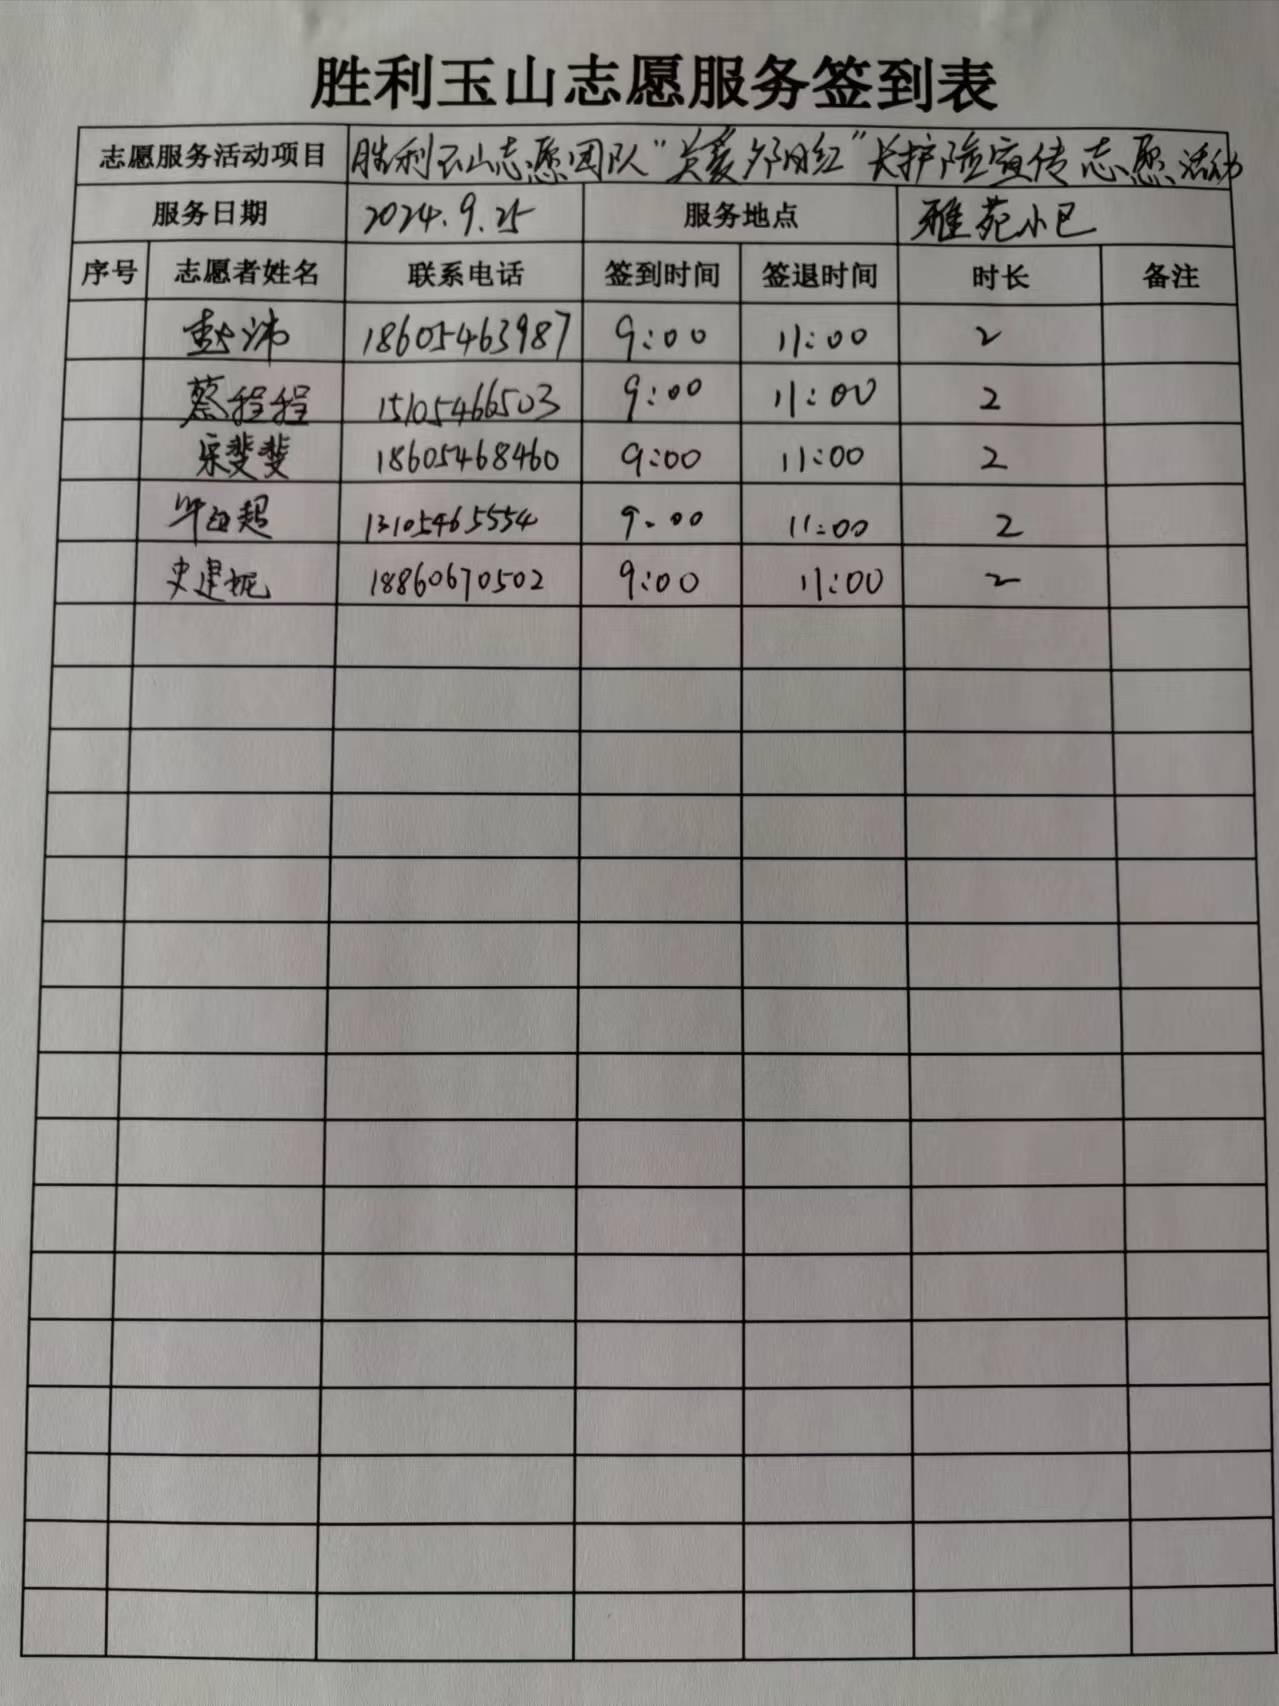 胜利玉山志愿服务签到表
志愿服务活动项目 胜利玉山志愿团队“关爱夕阳红”长护险宣传志愿活动
服务日期 2024.9.25 服务地点 雅苑小区
序号 志愿者姓名 联系电话 签到时间 签退时间 时长 备注
赵沛 18605463987 9:00 11:00 2
蔡程程 15105466503 9:00 11:00 2
宋斐斐 18605468460 9:00 11:00 2
超 13105465554 9:00 11:00 2
史建妮 18860670502 9:00 11:00 2